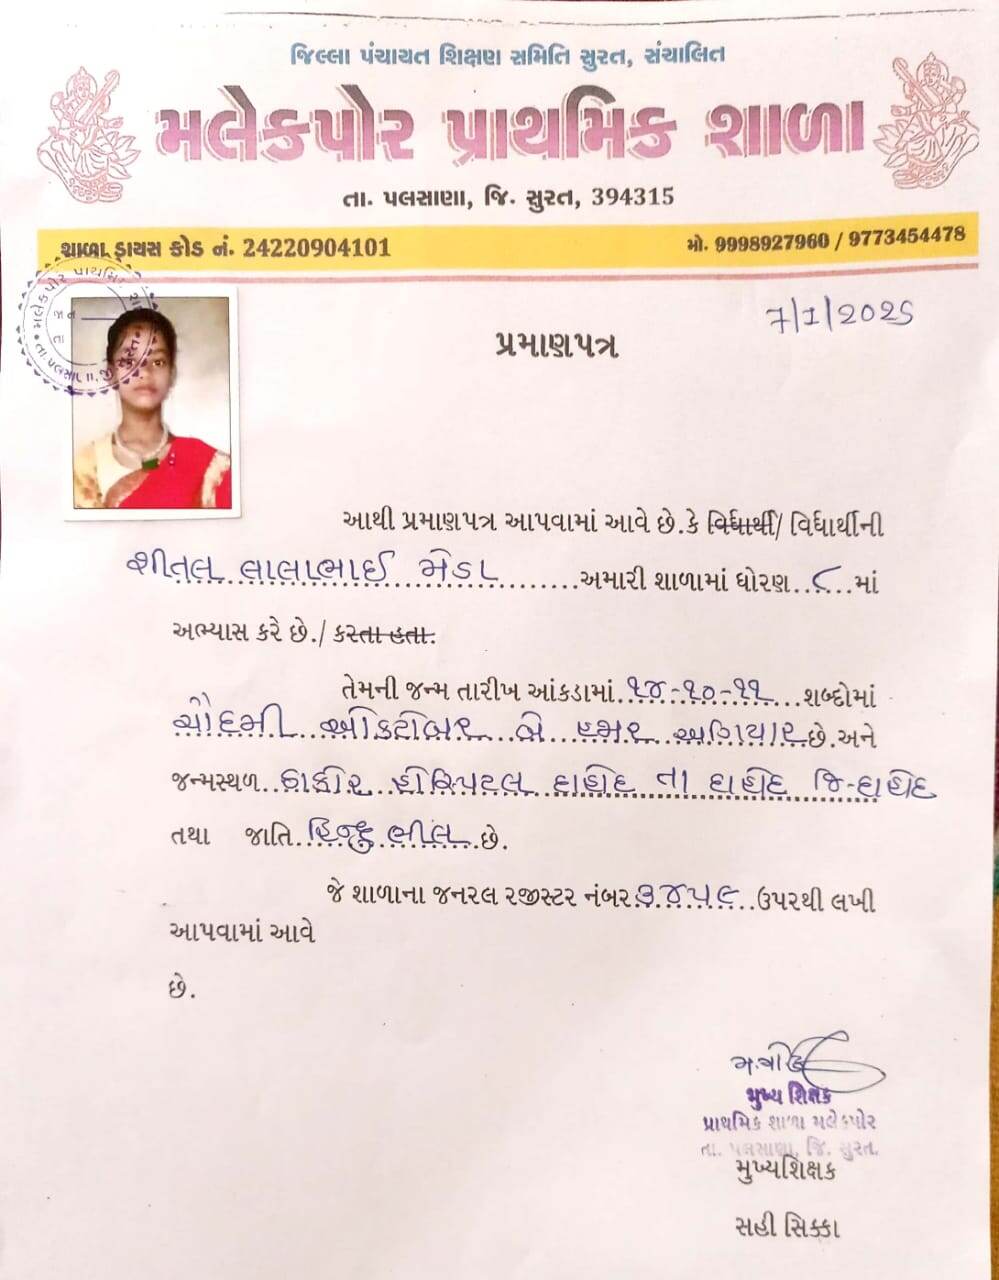 જિલ્લા પંચાયત શિક્ષણ સમિતિ સુરત, સંચાલિત
મલેકપોર પ્રાથમિક શાળા
તા. પલસાણા, જિ. સુરત, 394315
શાળા ડાયસ કોડ નં. 24220904101
મો. 9998927960 / 9773454478
મલેકપોર પ્રાથમિક
તા. પલસાણા, જી. સુરત
7/1/2025
પ્રમાણપત્ર
આથી પ્રમાણપત્ર આપવામાં આવે છે.કે વિદ્યાર્થી/ વિદ્યાર્થીની
શીતલ લાલાભાઈ મેડા અમારી શાળામાં ધોરણ ૮ માં
અભ્યાસ કરે છે./ કરતા હતા.
તેમની જન્મ તારીખ આંકડામાં ૧૪-૧૦-૧૧ શબ્દોમાં
ચૌદમી ઓક્ટોબર બે હજાર અગિયાર છે.અને
જન્મસ્થળ હોસ્પિટલ દાહોદ તા દાહોદ જિ-દાહોદ
તથા જાતિ હિન્દુ ભીલ છે.
જે શાળાના જનરલ રજીસ્ટર નંબર ૩૪૫૯ ઉપરથી લખી
આપવામાં આવે
છે.
મુખ્ય શિક્ષક
પ્રાથમિક શાળા મલેકપોર
તા. પલસાણા, જિ. સુરત.
મુખ્યશિક્ષક
સહી સિક્કા